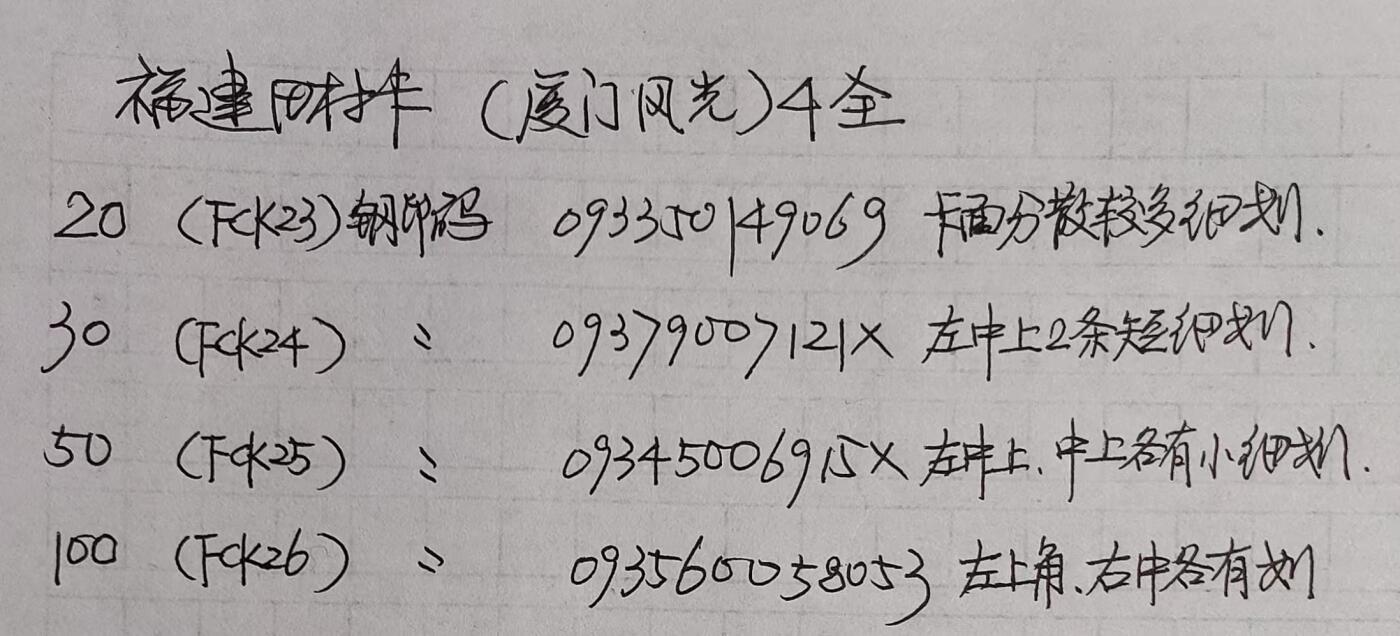 福建田村卡（厦门风光）4全
20 (FCK23) 钢印码 093350149069 卡面分散较多细划.
30 (FCK24) 〃 09379007121X 左中上2条短细划.
50 (FCK25) 〃 09345006915X 左中上、中上各有小细划.
100 (FCK26) 〃 093560058053 左上角、右中各有划